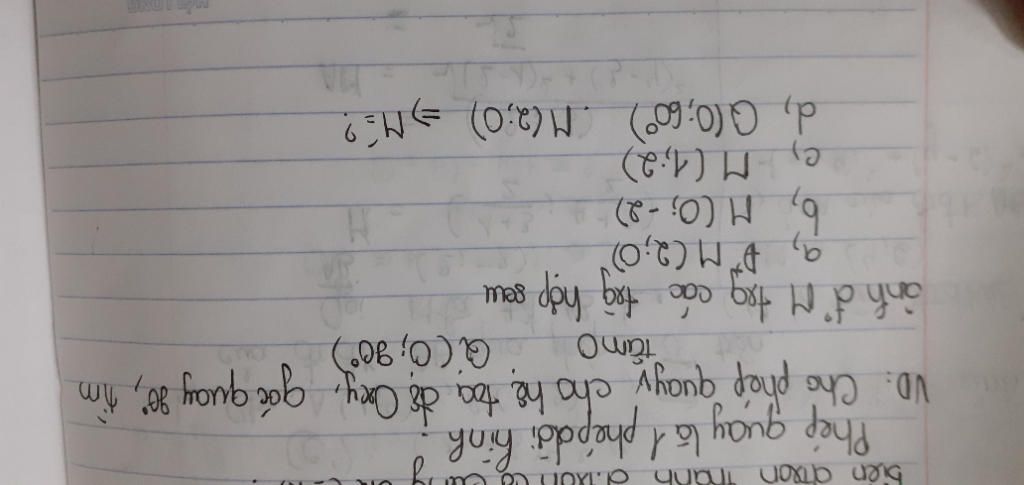 biến đtròn thành đ.tròn có cùng
Phép quay là 1 phép dời hình.
VD: Cho phép quay tâm O cho hệ tọa độ Oxy, góc quay 90°, tìm
Q(O; 90°)
ảnh đ' M trg các trg hợp sau
a, Đ' M(2;0)
b, M(0; -2)
c, M(1;2)
d, Q(O;60°) M(2;0) => M'=?